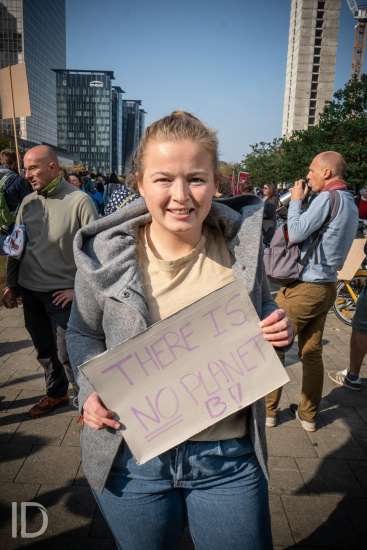 THERE IS
NO PLANET
B!
ID